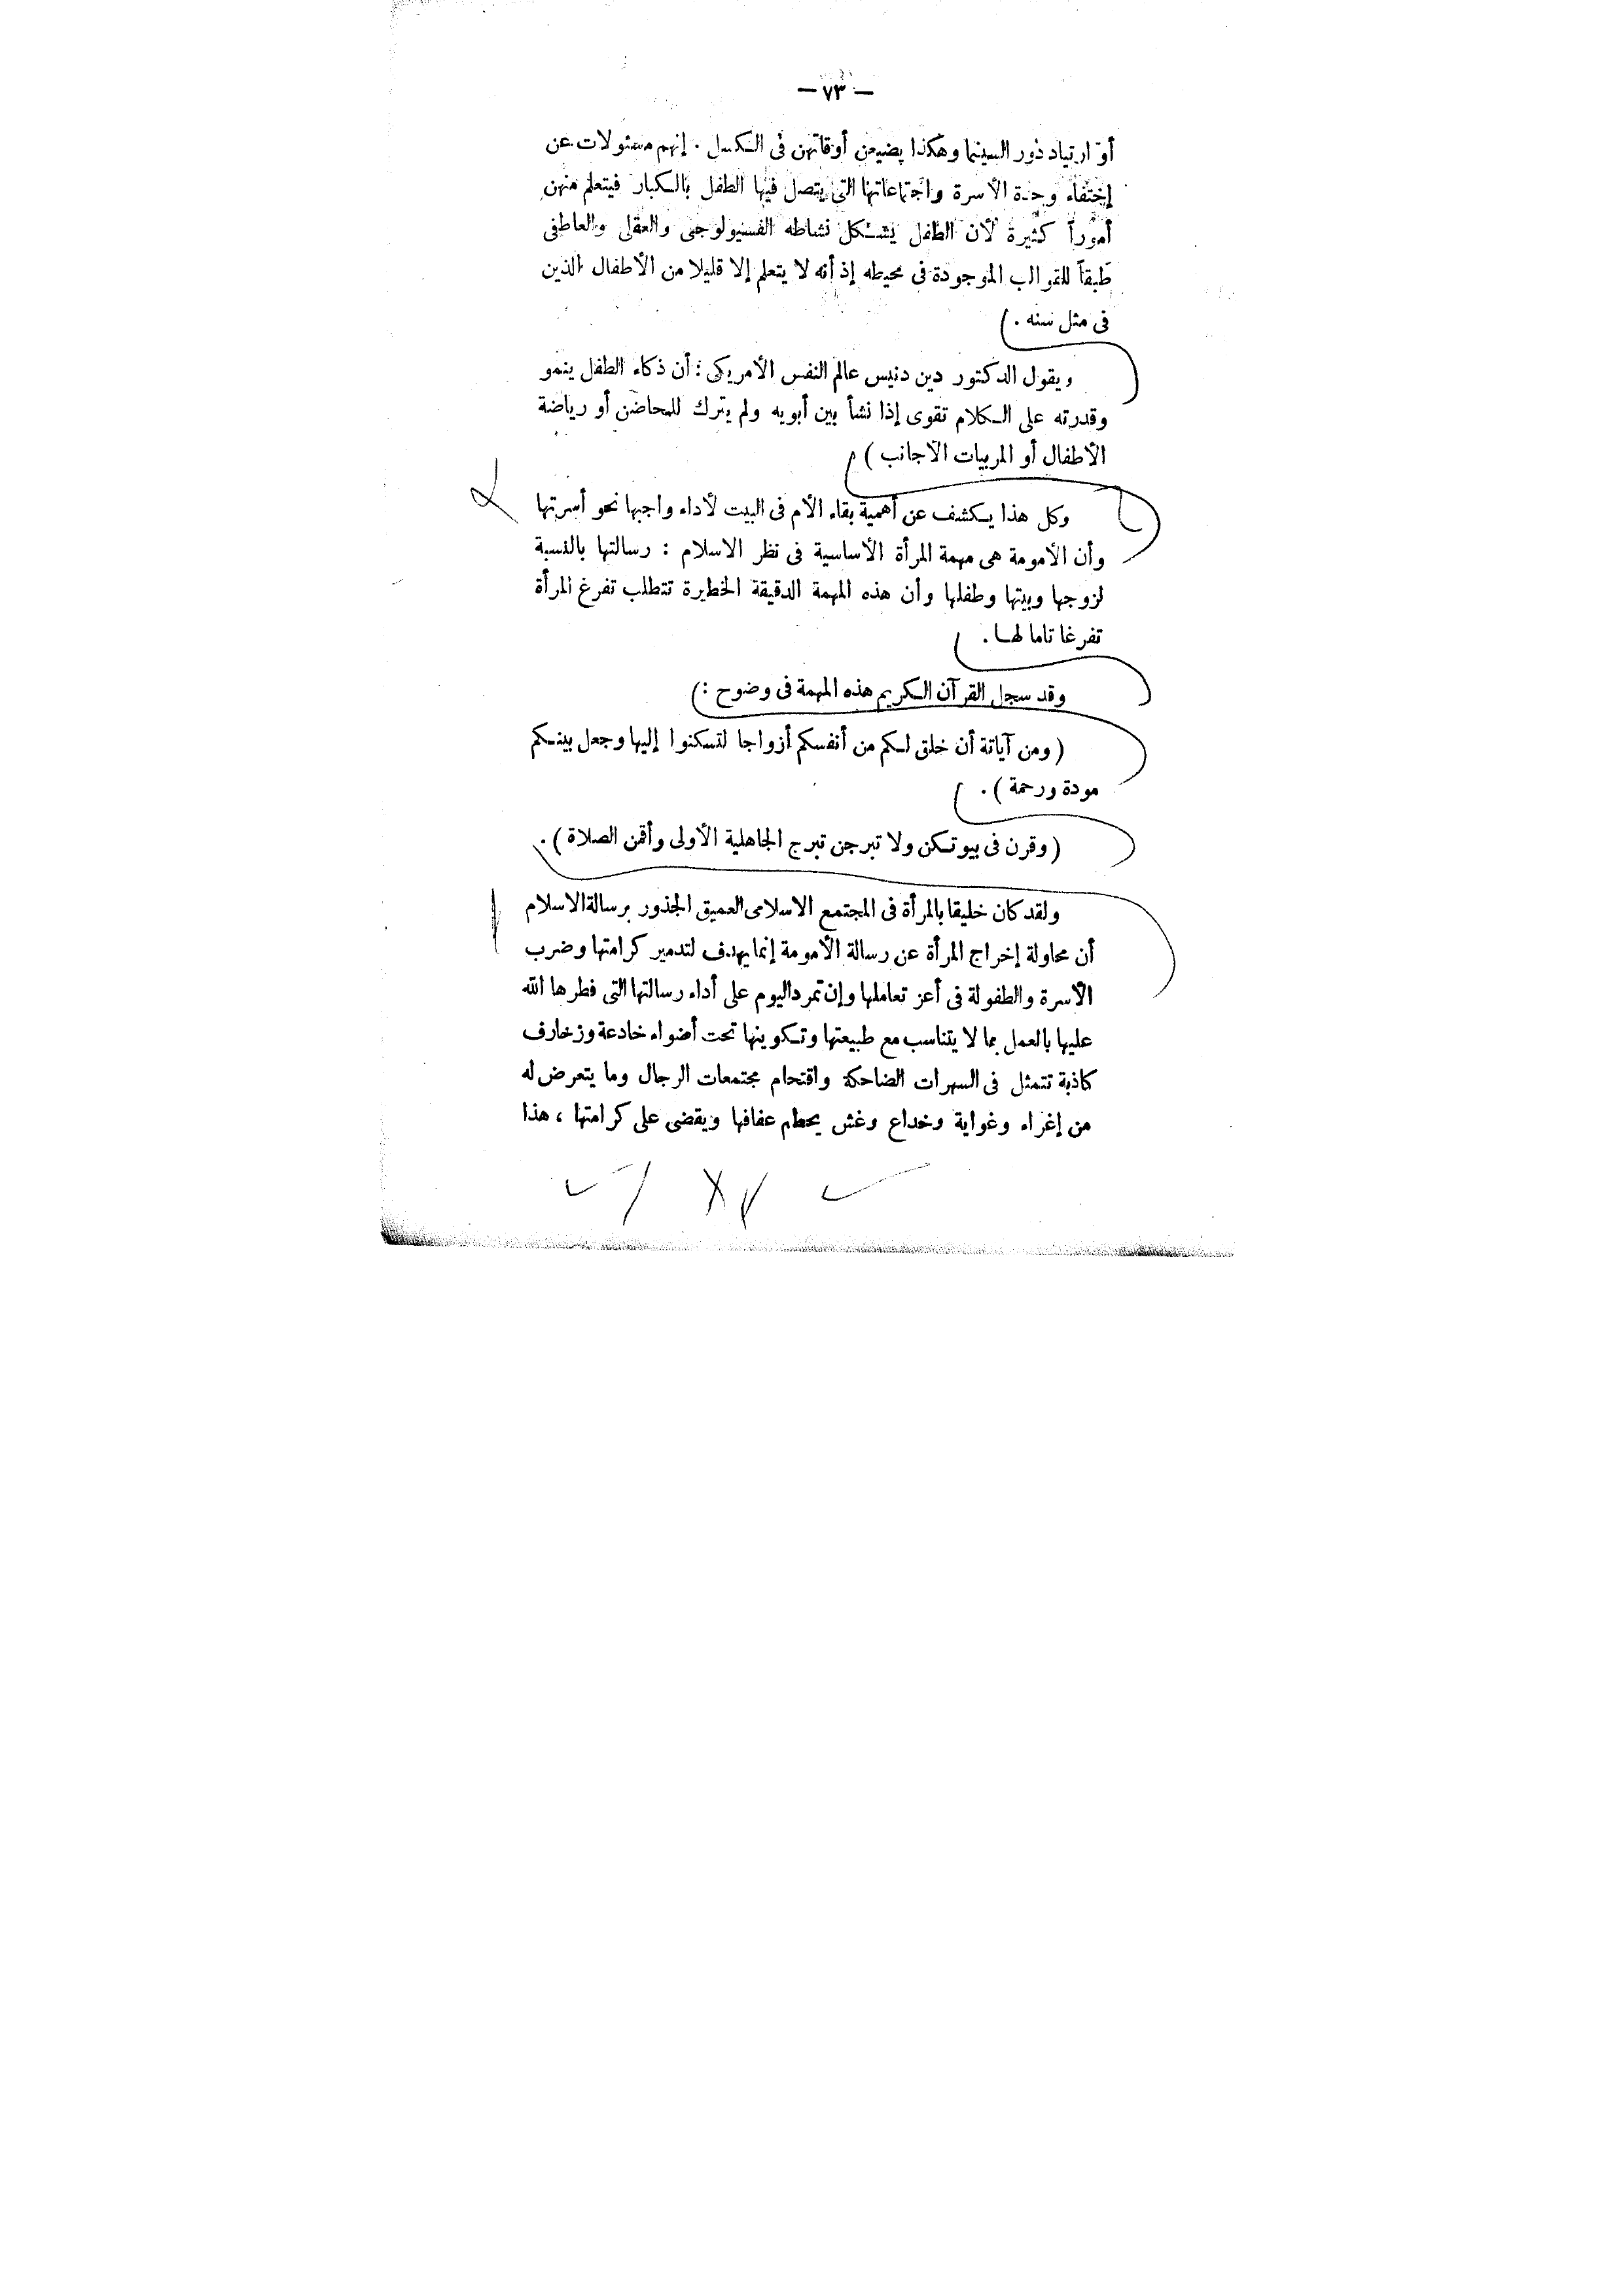 — ٧٣ —
أو ارتياد دور السينما وهكذا يضيعن أوقاتهن فى الكسل . إنهم مسئولات عن
إختفاء وحدة الأسرة واجتماعاتها التى يتصل فيها الطفل بالكبار فيتعلم منهن
أموراً كثيرة لأن الطفل يشكل نشاطه الفسيولوجى والعقلى والعاطفى
طبقاً للقوالب الموجودة فى محيطه إذ أنه لا يتعلم إلا قليلا من الأطفال الذين
فى مثل سنه .
ويقول الدكتور دين دنيس عالم النفس الأمريكى : أن ذكاء الطفل ينمو
وقدرته على الكلام تقوى إذا نشأ بين أبويه ولم يترك للمحاضن أو رياضة
الأطفال أو المربيات الأجانب )
وكل هذا يكشف عن أهمية بقاء الأم فى البيت لأداء واجبها نحو أسرتها
وأن الأمومة هى مهمة المرأة الأساسية فى نظر الاسلام : رسالتها بالنسبة
لزوجها وبيتها وطفلها وأن هذه المهمة الدقيقة الخطيرة تتطلب تفرغ المرأة
تفرغا تاما لها .
وقد سجل القرآن الكريم هذه المهمة فى وضوح :
( ومن آياتة أن خلق لكم من أنفسكم أزواجا لتسكنوا إليها وجعل بينكم
مودة ورحمة ) .
( وقرن فى بيوتكن ولا تبرجن تبرج الجاهلية الأولى وأقمن الصلاة ) .
ولقد كان خليقا بالمرأة فى المجتمع الاسلامى العميق الجذور برسالة الاسلام
أن محاولة إخراج المرأة عن رسالة الأمومة إنما يهدف لتدمير كرامتها وضرب
الأسرة والطفولة فى أعز تعاملها وإن تمرد اليوم على أداء رسالتها التى فطرها الله
عليها بالعمل بما لا يتناسب مع طبيعتها وتكوينها تحت أضواء خادعة وزخارف
كاذبة تتمثل فى السهرات الضاحكة واقتحام مجتمعات الرجال وما يتعرض له
من إغراء وغواية وخداع وغش يحطم عفافها ويقضى على كرامتها ، هذا